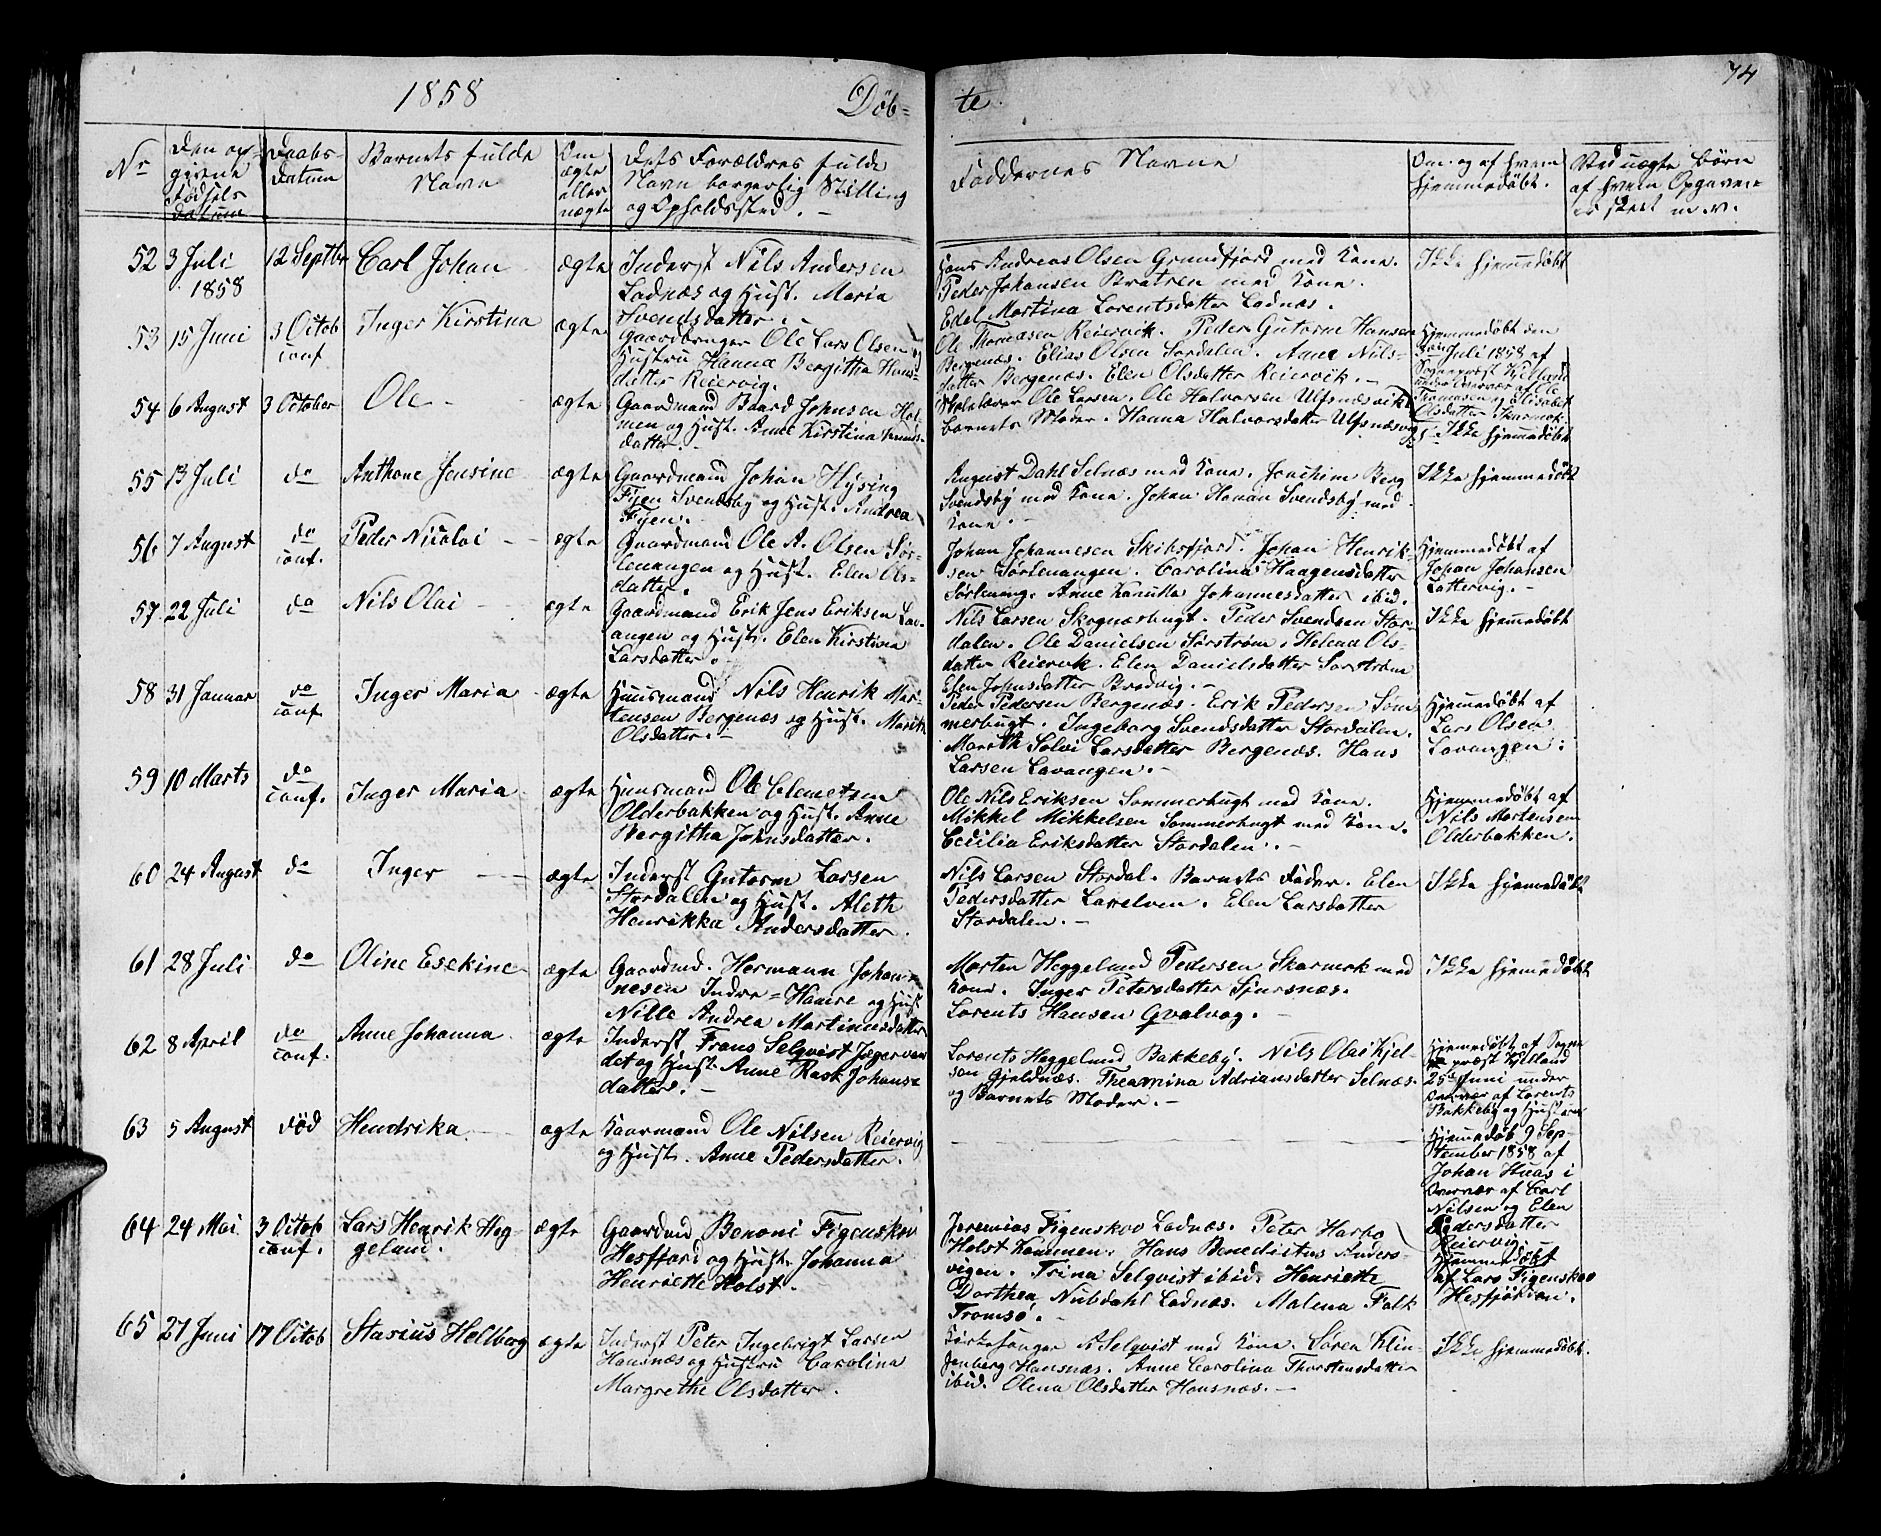 1858 Døb= te. 74
Nr
Den op-
givne
Fødsels
datum
Daabs-
datum
Barnets fulde
Navn
Om
ægte
eller
uægte
Dets Forældres fulde
Navn borgerlig Stilling
og Opholdssted. –
Faddernes Navne
Om og af hvem
hjemmedøbt.
Ved uægte Børn
af hvem Opgaven
er skeet m.v.
52 3 Juli 12 Septbr Carl Johan ægte Inderst Nils Andersen
1858 Ladnæs og Hust. Maria
Svendsdatter. –
Hans Andreas Olsen Grundfjord med Kone.
Peder Johansen Bratren med Kone.
Edel Martina Lorentsdatter Ladnæs.
Ikke hjemmedøbt
53 15 Juni 3 Octob Inger Kirstina ægte Gaardbruger Ole Lars Olsen og
conf Hustru Hanna Bergitha Hans-
datter Reiervig.
Ole Thomasen Reiervik. Peder Gutorm Hansen
Bergenæs. Elias Olsen Sordalen. Anne Nils-
datter Bergenæs. Elen Olsdatter Reiervik. –
Hjemmedøbt den
Juli 1858 af
Sognepræst Kjelland
under Overvær af Ole
Thomasen og Elisabet
Olsdatter Skarmok
54 6 August 3 October Ole ægte Gaardmand Baard Johnsen Hol-
men og Hust. Anne Kirstina
datter.
Skolelærer Ole Larsen. Ole Halvorsen Ulfsnæsvik
barnets Moder. Hanna Halvorsdatter Ulfsnæsvig
Ikke hjemmedøbt
55 13 Juli do Anthone Jensine ægte Gaardmand Johan Hysing
Fyen Svendsby og Hust. Andrea
Fyen. –
August Dahl Selnæs med Kone. Joachim Berg
Svendsby med Kone. Johan Hanan Svendsby med
Kone. –
Ikke hjemmedøbt
56 7 August do Peder Nicolai ægte Gaardmand Ole A. Olsen Sør-
conf. lenangen og Hust. Elen Ols-
datter.
Johan Johannesen Skibsfjord. Johan Henrik-
sen Sørlenangen. Carolina Haagensdatter
Sørlening. Anne Kanutta Johannesdatter ibid.
Hjemmedøbt af
Johan Johansen
Lattervig. –
57 22 Juli do Nils Olai ægte Gaardmand Erik Jens Eriksen Lav-
angen og Hust. Elen Kirstina
Larsdatter.
Nils Larsen Skognæsbugt. Peder Svendsen Stor-
dalen. Ole Danielsen Sørstrøm. Helena Ols-
datter Reiervik. Elen Danielsdatter Sørstrøm
Elen Johnsdatter Bredvig. –
Ikke hjemmedøbt
58 31 Januar do Inger Maria ægte Huusmand Nils Henrik Mor-
conf. tensen Bergenæs og Hust. Marith
Olsdatter. –
Peder Pedersen Bergenæs. Erik Pedersen Som
merbugt. Ingeborg Svendsdatter Stordalen.
Mareth Solvi Larsdatter Bergenæs. Hans
Larsen Lavangen. –
Hjemmedøbt af
Lars Olsen
Lavangen.
59 10 Marts do Inger Maria ægte Huusmand Ole Clemetsen
conf. Olderbakken og Hust. Anne
Bergitha Johnsdatter.
Ole Nils Eriksen Sommerbugt med Kone.
Mikkel Mikkelsen Sommerbugt med Kone.
Cecilia Eriksdatter Stordalen. –
Hjemmedøbt af
Nils Mortensen
Olderbakken.
60 24 August do Inger ægte Inderst Gutorm Larsen
Stordalen og Hust. Aleth
Henrikka Andersdatter.
Nils Larsen Stordal. Barnets Fader. Elen
Pedersdatter Lavelven. Elen Larsdatter
Stordalen. –
Ikke hjemmedøbt
61 28 Juli do Oline Esekine ægte Gaardmd. Hermann Johan-
nesen Indre=Hamre og Hust
Nille Andrea Martinusdatter
Morten Heggelund Pedersen Skarmok med
Kone. Inger Petersdatter Sjursnæs.
Lorents Hansen Qvalvog. –
Ikke hjemmedøbt
62 8 April do Anne Johanna ægte Inderst Frans Selqvist Jegervan
conf. det og Hust. Anne Rask Johans-
datter. –
Lorents Heggelund Bakkeby. Nils Olai Kjel-
sen Gjeldnæs. Theamina Adriansdatter Selnæs.
og Barnets Moder. –
Hjemmedøbt af Sogne
præst Kjelland
25de Juni under
Overvær af Lorents
Bakkeby og Hustru
63 5 August død Hendrika ægte Gaarmand Ole Nilsen Reiervig
og Hust. Anne Pedersdatter.
Hjemmedøb 9 Sep-
tember 1858 af
Johan Huas i
Overvær af Carl
Nilsen og Elen
Pedersdatter
Reiervig.
64 24 Mai 3 Octob Lars Henrik Heg- ægte Gaardmd Benoni Figenskov
conf. gelund. Hesfjord og Hust. Johanna
Henriette Holst.
Jeremias Figenskov Ladnæs. Peter Harbo
Holst Kammen. Hans Benedictus Anders-
vigen. Trina Selqvist ibid. Henriette
Dorthea Nubdahl Ladnæs. Malena Falk
Tromsø. –
Hjemmedøbt
af Lars Figenskov
Hesfjorden.
65 27 Juni 17 Octob Stasius Hellberg ægte Inderst Peter Ingebrigt Larsen
Hansnæs og Hustru Carolina
Margrethe Olsdatter.
Kirkesanger A Selqvist med Kone. Søren Klin-
genberg Hansnæs. Anne Carolina Thorstensdatter
ibid. Olena Olsdatter Hansnæs. –
Ikke hjemmedøbt.